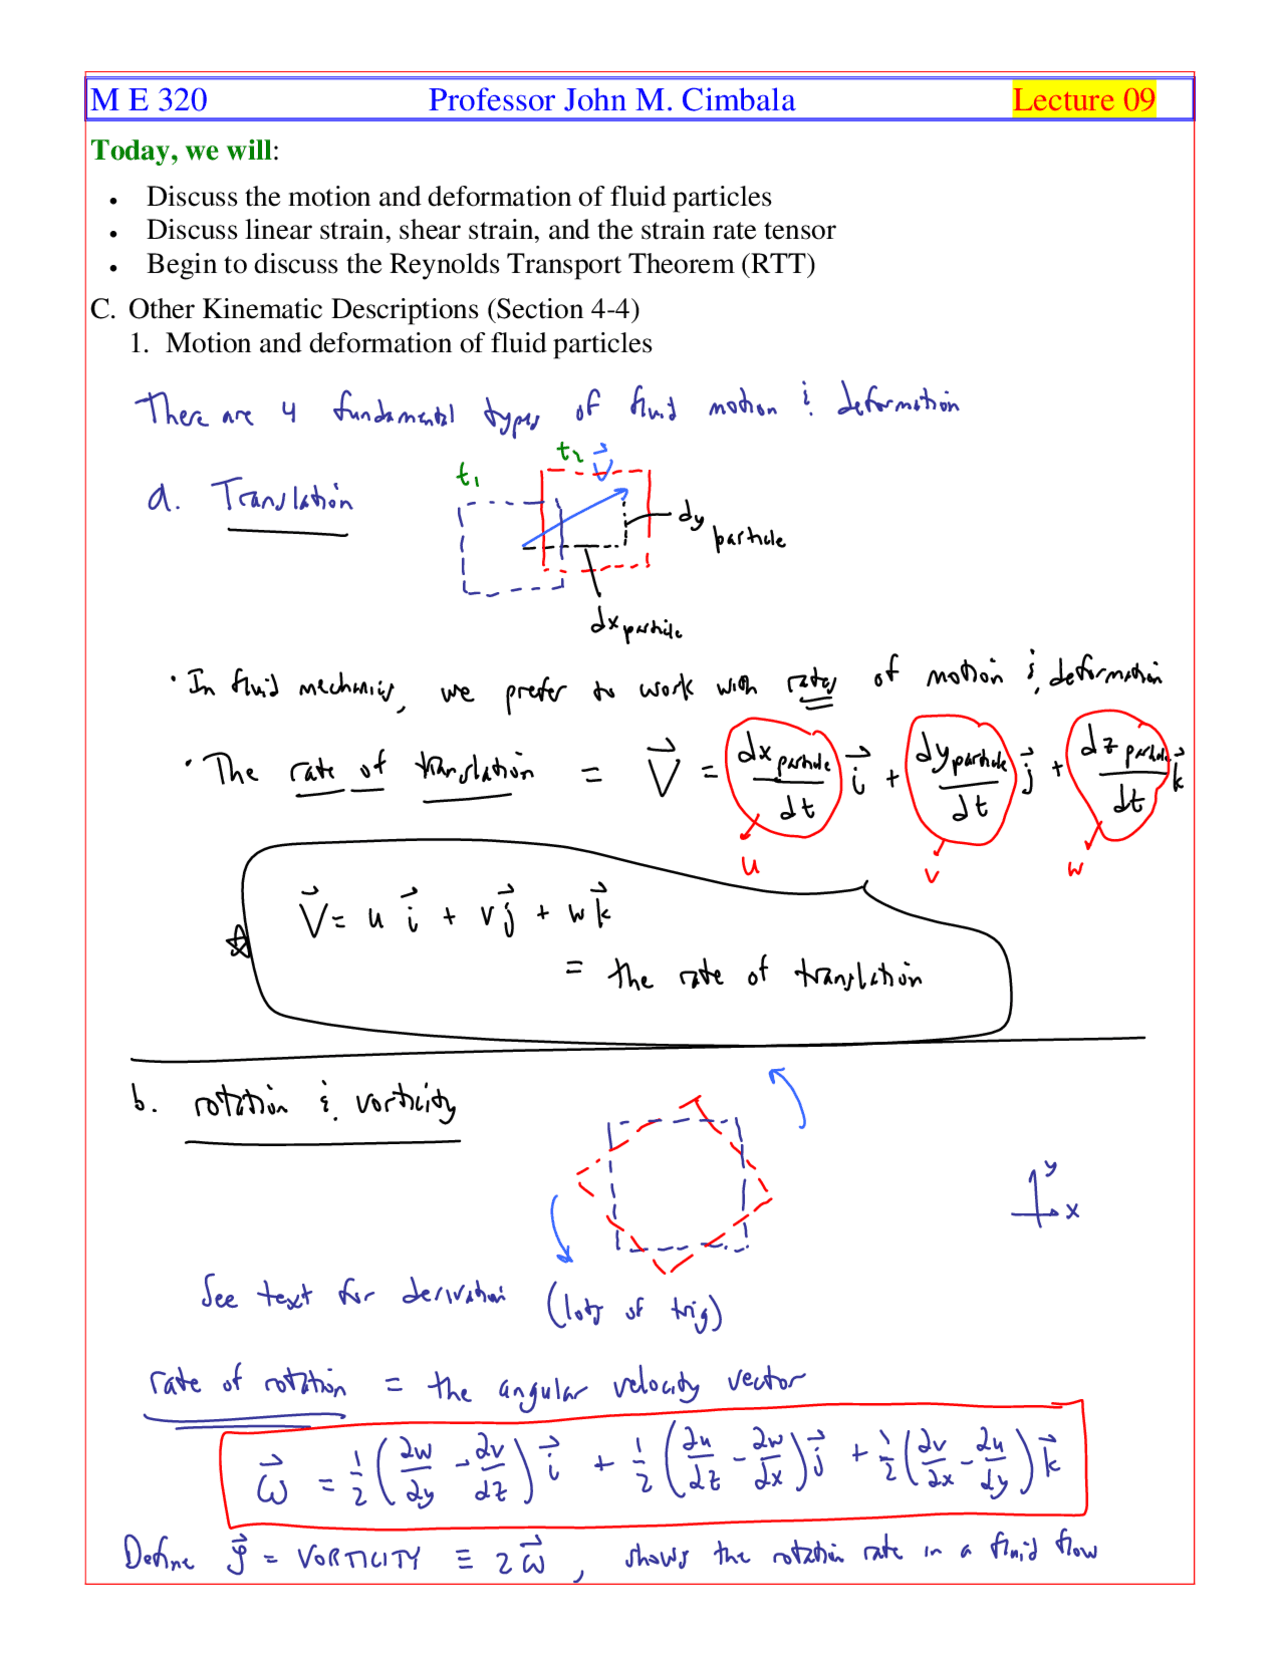 M E 320 Professor John M. Cimbala Lecture 09
Today, we will:
• Discuss the motion and deformation of fluid particles
• Discuss linear strain, shear strain, and the strain rate tensor
• Begin to discuss the Reynolds Transport Theorem (RTT)
C. Other Kinematic Descriptions (Section 4-4)
1. Motion and deformation of fluid particles
There are 4 fundamental types of fluid motion & deformation
a. Translation
t₁
t₂
V⃗
dy particle
dx particle
· In fluid mechanics, we prefer to work with rates of motion & deformation
· The rate of translation = V⃗ = dx particle/dt i⃗ + dy particle/dt j⃗ + dz particle/dt k⃗
u v w
V⃗ = u i⃗ + v j⃗ + w k⃗
= the rate of translation
b. rotation & vorticity
y
x
See text for derivation (lots of trig)
rate of rotation = the angular velocity vector
ω⃗ = 1/2 (∂w/∂y - ∂v/∂z) i⃗ + 1/2 (∂u/∂z - ∂w/∂x) j⃗ + 1/2 (∂v/∂x - ∂u/∂y) k⃗
Define ζ⃗ = VORTICITY ≡ 2ω⃗, shows the rotation rate in a fluid flow